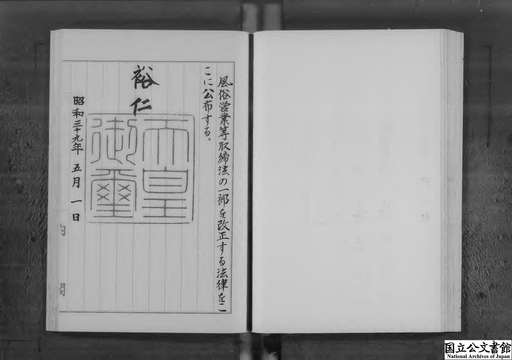 風俗営業等取締法の一部を改正する法律をこ
こに公布する。
裕仁
天皇
御璽
昭和三十九年五月一日
国立公文書館
National Archives of Japan